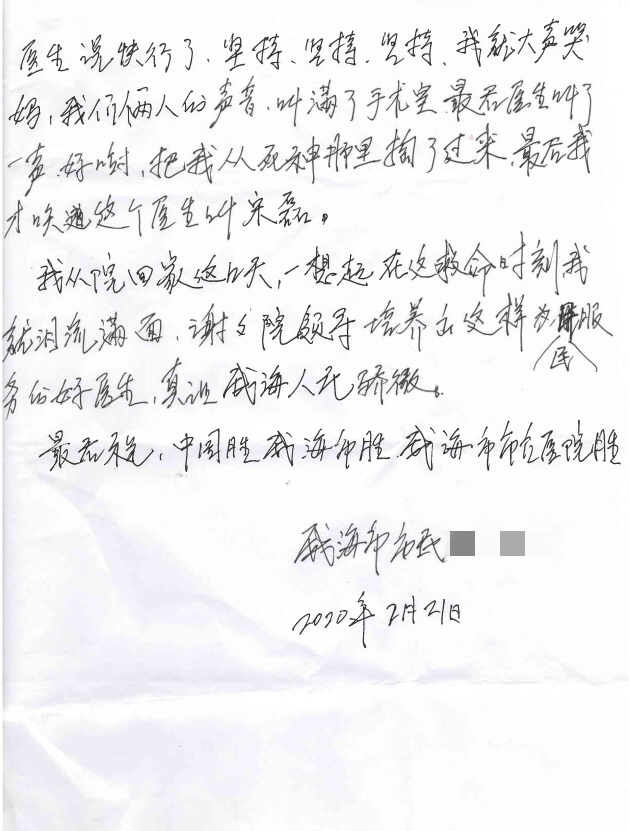 医生说快行了、坚持、坚持、坚持、我就大声哭
妈,我们俩人的声音,叫满了手术室.最后医生叫了
一声.好啦,把我从死神那里掏了过来,最后我
才知道这个医生叫宋磊。
我从院回家这几天,一想起在这救命时刻我
就泪流满面,谢谢院领导培养出这样为民服
务的好医生,真让威海人民骄傲。
最后祝,中国胜 威海市胜 威海市市立医院胜
威海市市民
2020年2月21日